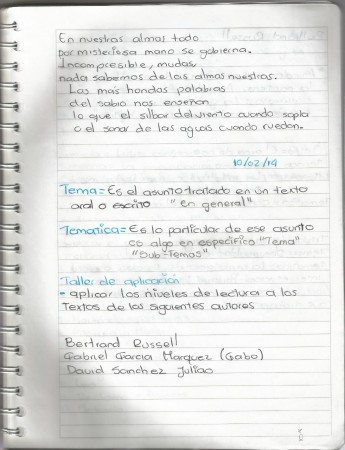 En nuestras almas todo
por misteriosa mano se gobierna.
Incompresible, mudas,
nada sabemos de las almas nuestras.
Las más hondas palabras
del sabio nos enseñan
lo que el silbar del viento cuando sopla
o el sonar de las aguas cuando ruedan.
10/02/14
Tema = Es el asunto tratado en un texto
oral o escrito "en general"
Tematica = Es lo particular de ese asunto
es algo en especifico "Tema"
"Sub-Temas"
Taller de aplicación
- aplicar los niveles de lectura a los
Textos de los siguientes autores
Bertrand Russell
Gabriel Garcia Marquez (Gabo)
David Sanchez Juliao